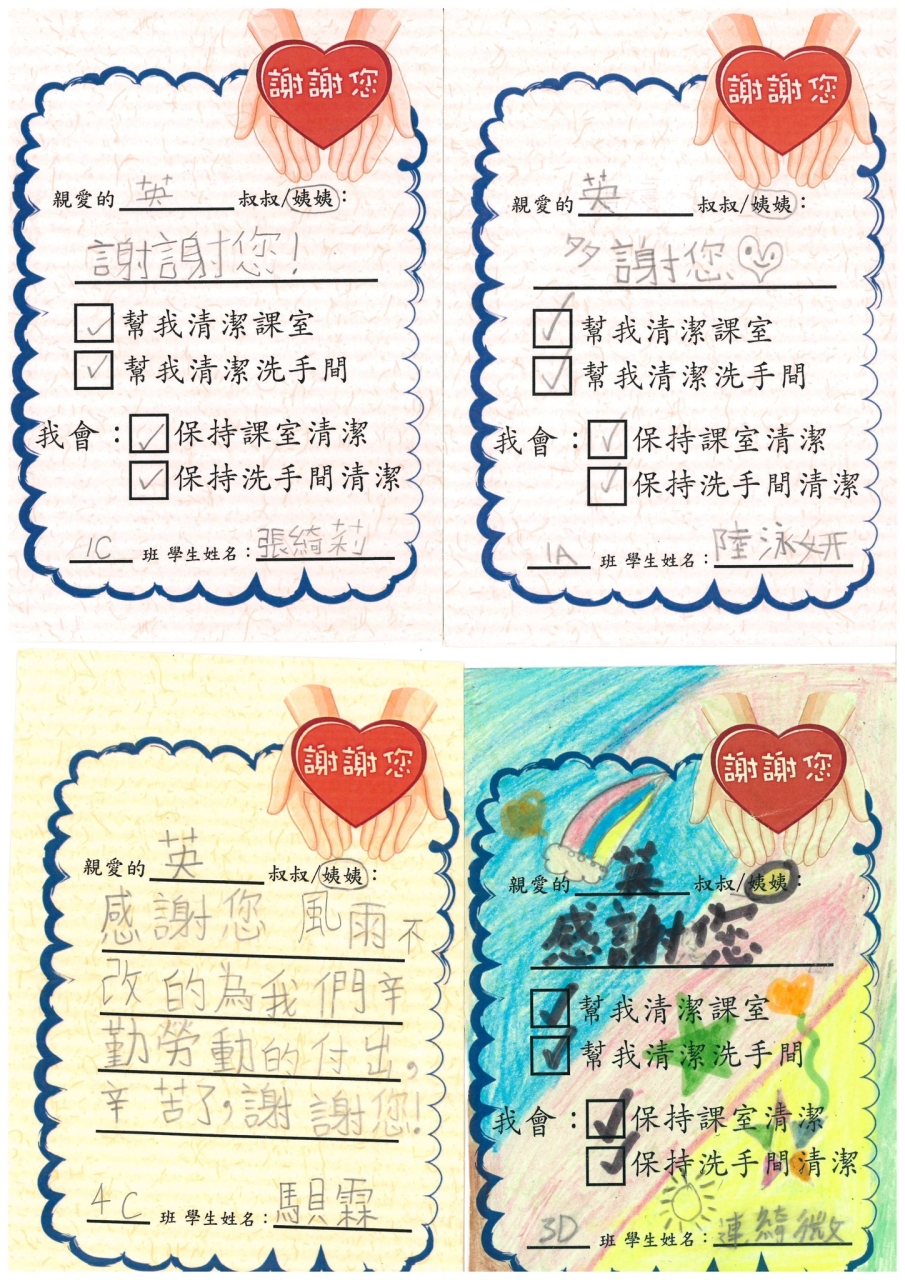 謝謝您
親愛的 英 叔叔/姨姨：
謝謝您！
幫我清潔課室
幫我清潔洗手間
我會：保持課室清潔
保持洗手間清潔
1C 班 學生姓名：張綺莉
謝謝您
親愛的 英 叔叔/姨姨：
多謝您
幫我清潔課室
幫我清潔洗手間
我會：保持課室清潔
保持洗手間清潔
1A 班 學生姓名：陸泳妍
謝謝您
親愛的 英 叔叔/姨姨：
感謝您 風雨不
改的為我們辛
勤勞動的付出，
辛苦了，謝謝您！
4C 班 學生姓名：霖
謝謝您
親愛的 英 叔叔/姨姨：
感謝您
幫我清潔課室
幫我清潔洗手間
我會：保持課室清潔
保持洗手間清潔
3D 班 學生姓名：連綺微